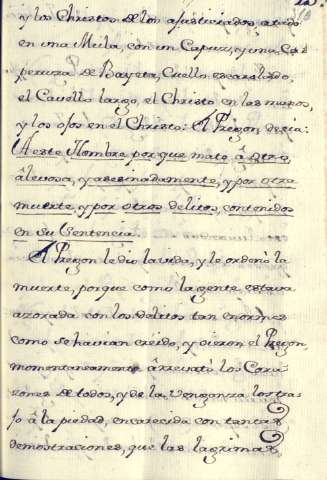 y los Christos de los ajusticiados, atado
en una Mula, con un Capuz, y una Ca-
peruza de Bayeta, Cuello escarolado,
el Cavello largo, el Christo en las manos,
y los ojos en el Christo: El Pregon, desia:
A este Hombre por que mató â Otro,
âlevosa, y asesinadamente, y por otra
muerte, y por otros delitos, contenidos
en su Sentencia.
El Pregon le dio la vida, y le ordenó la
muerte, porque como la gente estava
azorada con los delitos tan enormes
como se havian creido, y oieron el Pregon,
momentaneamente ârrevató los Cora-
zones de todos, y de la Venganza los tra-
jo â la piedad, encarecida con tantas
demostraciones, que las lagrimas,